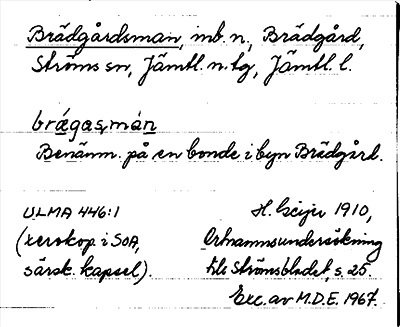 Brädgårdsman, inb. n., Brädgård,
Ströms sn, Jämtl. n. tg, Jämtl. l.
brǽgas,mán
Benämn. på en bonde i byn Brädgård.
ULMA 446:1
(xerokop. i SOA,
särsk. kapsel).
H. Geijer 1910,
Ortnamnsundersökning
fr. Strömsbladet, s. 25.
Exc. av M.D.E. 1967.